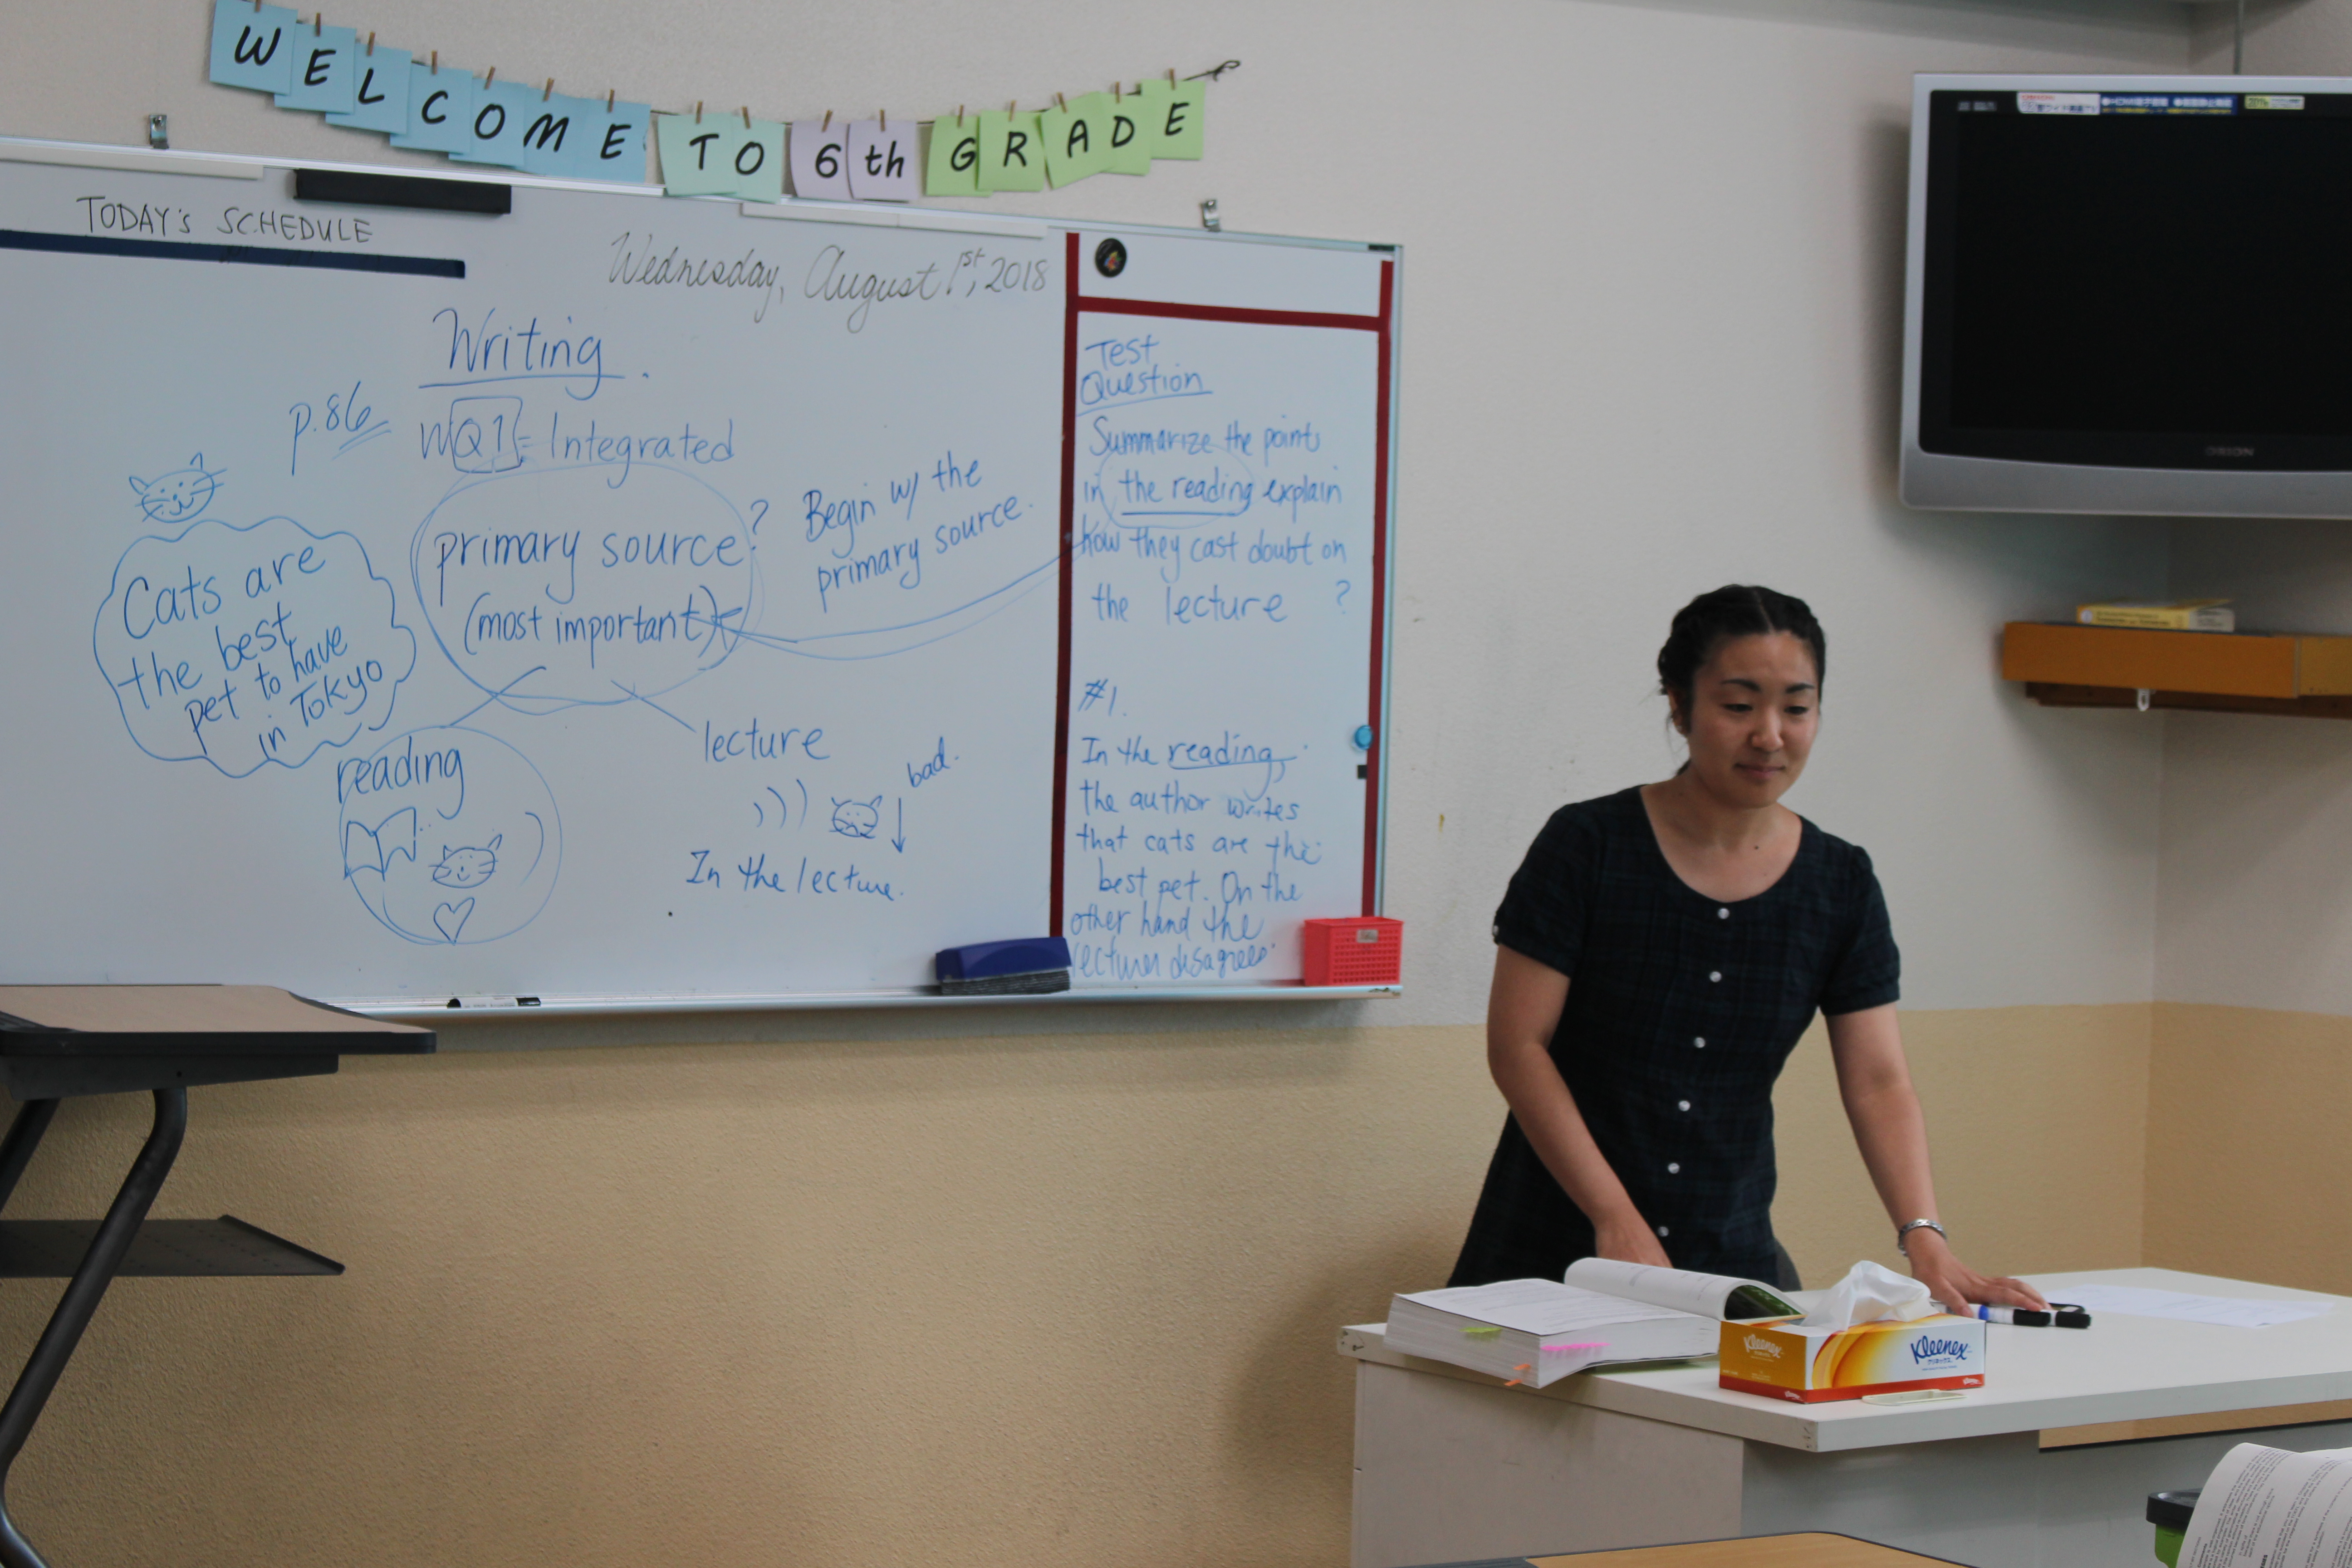 WELCOME TO 6th GRADE
TODAY'S SCHEDULE
Wednesday, August 1st, 2018
Writing.
p.86
WQ1 = Integrated
primary source?
(most important)
Begin w/ the
primary source.
Cats are
the best
pet to have
in Tokyo
reading
lecture
bad.
In the lecture.
Test
Question
Summarize the points
in the reading explain
how they cast doubt on
the lecture ?
#1.
In the reading,
the author writes
that cats are the
best pet. On the
other hand the
lecturer disagrees
ORION
Kleenex
クリネックス